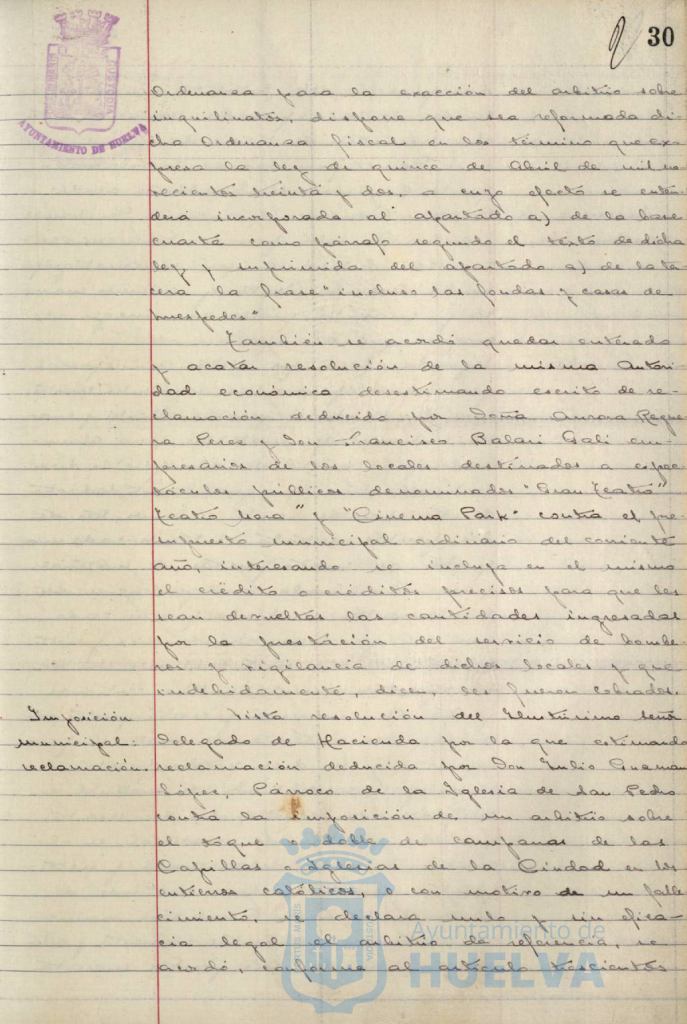 30
AYUNTAMIENTO DE HUELVA
Ordenanza para la exacción del arbitrio sobre
inquilinatos, dispone que sea reformada di-
cha Ordenanza fiscal en los término que ex-
presa la ley de quince de Abril de mil no-
vecientos treinta y dos, a cuyo efecto se enten-
derá incorporada al apartado a) de la base
cuarta como párrafo segundo el texto de dicha
ley y suprimida del apartado a) de la ter-
cera la frase "incluso las fondas y casas de
huespedes"
También se acordó quedar enterado
y acatar resolución de la misma Autori-
dad económica desestimando escrito de re-
clamación deducido por Doña Aurora Reque-
na Perez y Don Francisco Balari Galí em-
presarios de los locales destinados a espec-
táculos públicos denominados "Gran Teatro"
Teatro Mora" y "Cinema Park" contra el pre-
supuesto municipal ordinario del corriente
año, interesando se incluya en el mismo
el crédito o créditos precisos para que les
sean devueltas las cantidades ingresadas
por la prestación del servicio de bombe-
ros y vigilancia de dichos locales y que
indebidamente, dicen, les fueron cobrados.
Imposición
municipal:
reclamación.
Vista resolución del Ilustrísimo Señor
Delegado de Hacienda por la que estimando
reclamación deducida por Don Julio Guzman
López, Párroco de la Iglesia de San Pedro
contra la imposición de un arbitrio sobre
el toque o doble de campanas de las
Capillas e Iglesias de la Ciudad en los
entierros católicos, o con motivo de un falle-
cimiento, se declara nulo y sin efica-
cia legal el arbitrio de referencia, se
acordó, conforme al artículo trescientos
Ayuntamiento de
HUELVA